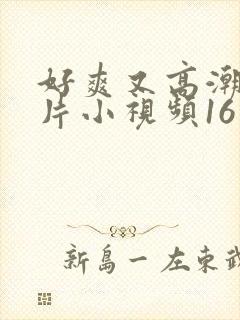 好爽又高潮
片小視頻16
新島一左東武